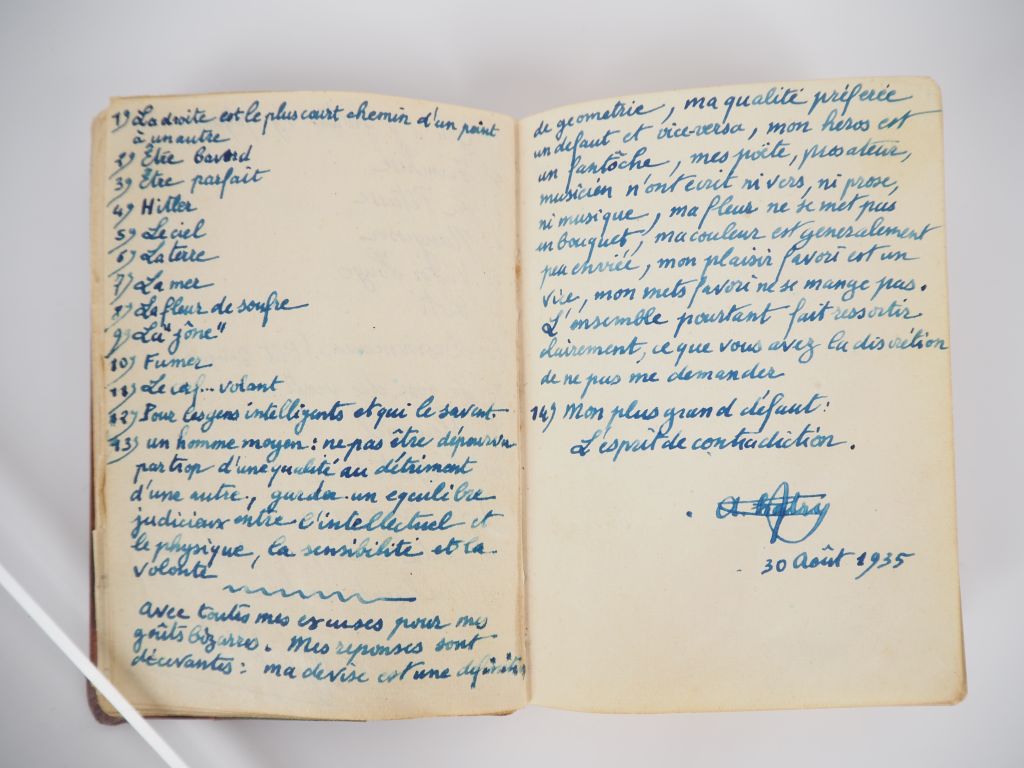 1) La droite est le plus court chemin d'un point
à un autre
2) Être bavard
3) Être parfait
4) Hitler
5) Le ciel
6) La terre
7) La mer
8) La fleur de soufre
9) La "jône"
10) Fumer
11) Le cerf... volant
12) Pour les gens intelligents et qui le savent.
13) un homme moyen : ne pas être dépourvu
par trop d'une qualité au détriment
d'une autre, garder un equilibre
judicieux entre l'intellectuel et
le physique, la sensibilité et la
volonté
Avec toutes mes excuses pour mes
goûts bizarres. Mes reponses sont
décevantes : ma devise est une definition
de geometrie, ma qualité préferée
un defaut et vice-versa, mon heros est
un fantôche, mes poëte, prosateur,
musicien n'ont ecrit ni vers, ni prose,
ni musique, ma fleur ne se met pas
en bouquet, ma couleur est generalement
peu enviée, mon plaisir favori est un
vice, mon mets favori ne se mange pas.
L'ensemble pourtant fait ressortir
clairement, ce que vous avez la discrétion
de ne pas me demander
14) Mon plus grand défaut :
L'esprit de contradiction.
30 Août 1935